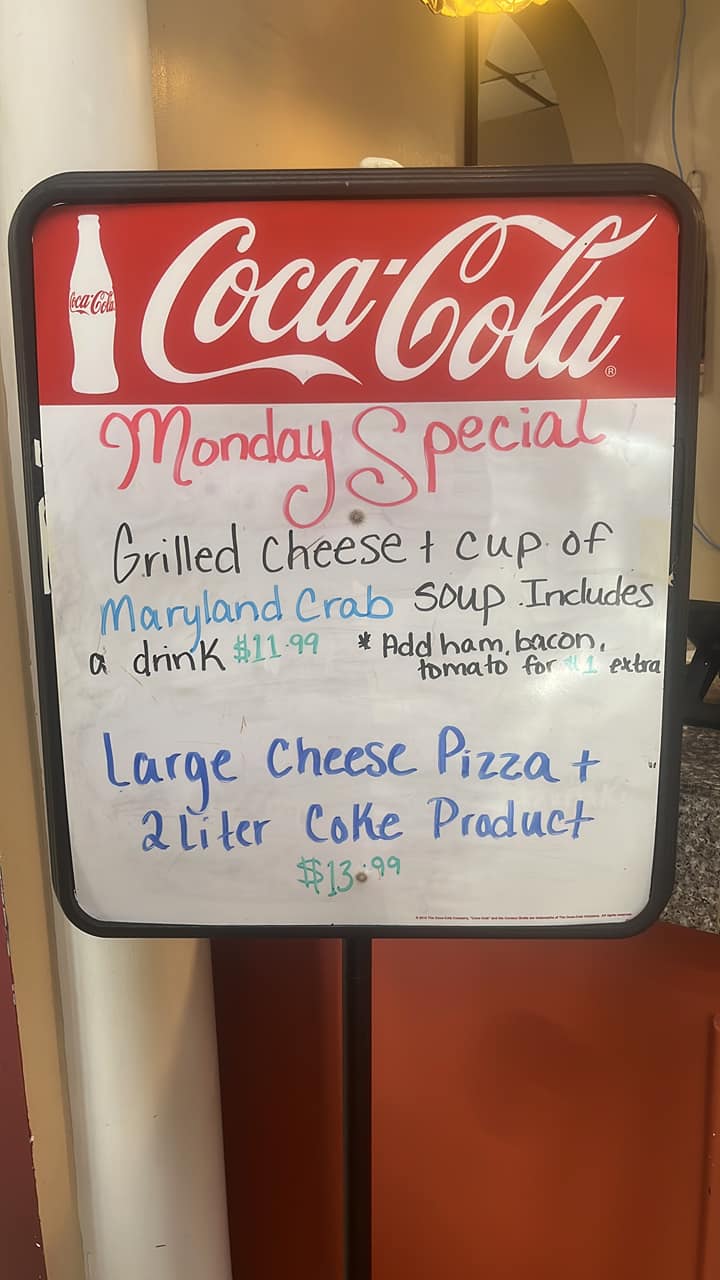 Coca-Cola
Coca-Cola®
Monday Special
Grilled Cheese + cup of
Maryland Crab soup. Includes
a drink $11.99 * Add ham, bacon,
tomato for $1 extra
Large Cheese Pizza +
2 Liter Coke Product
$13.99